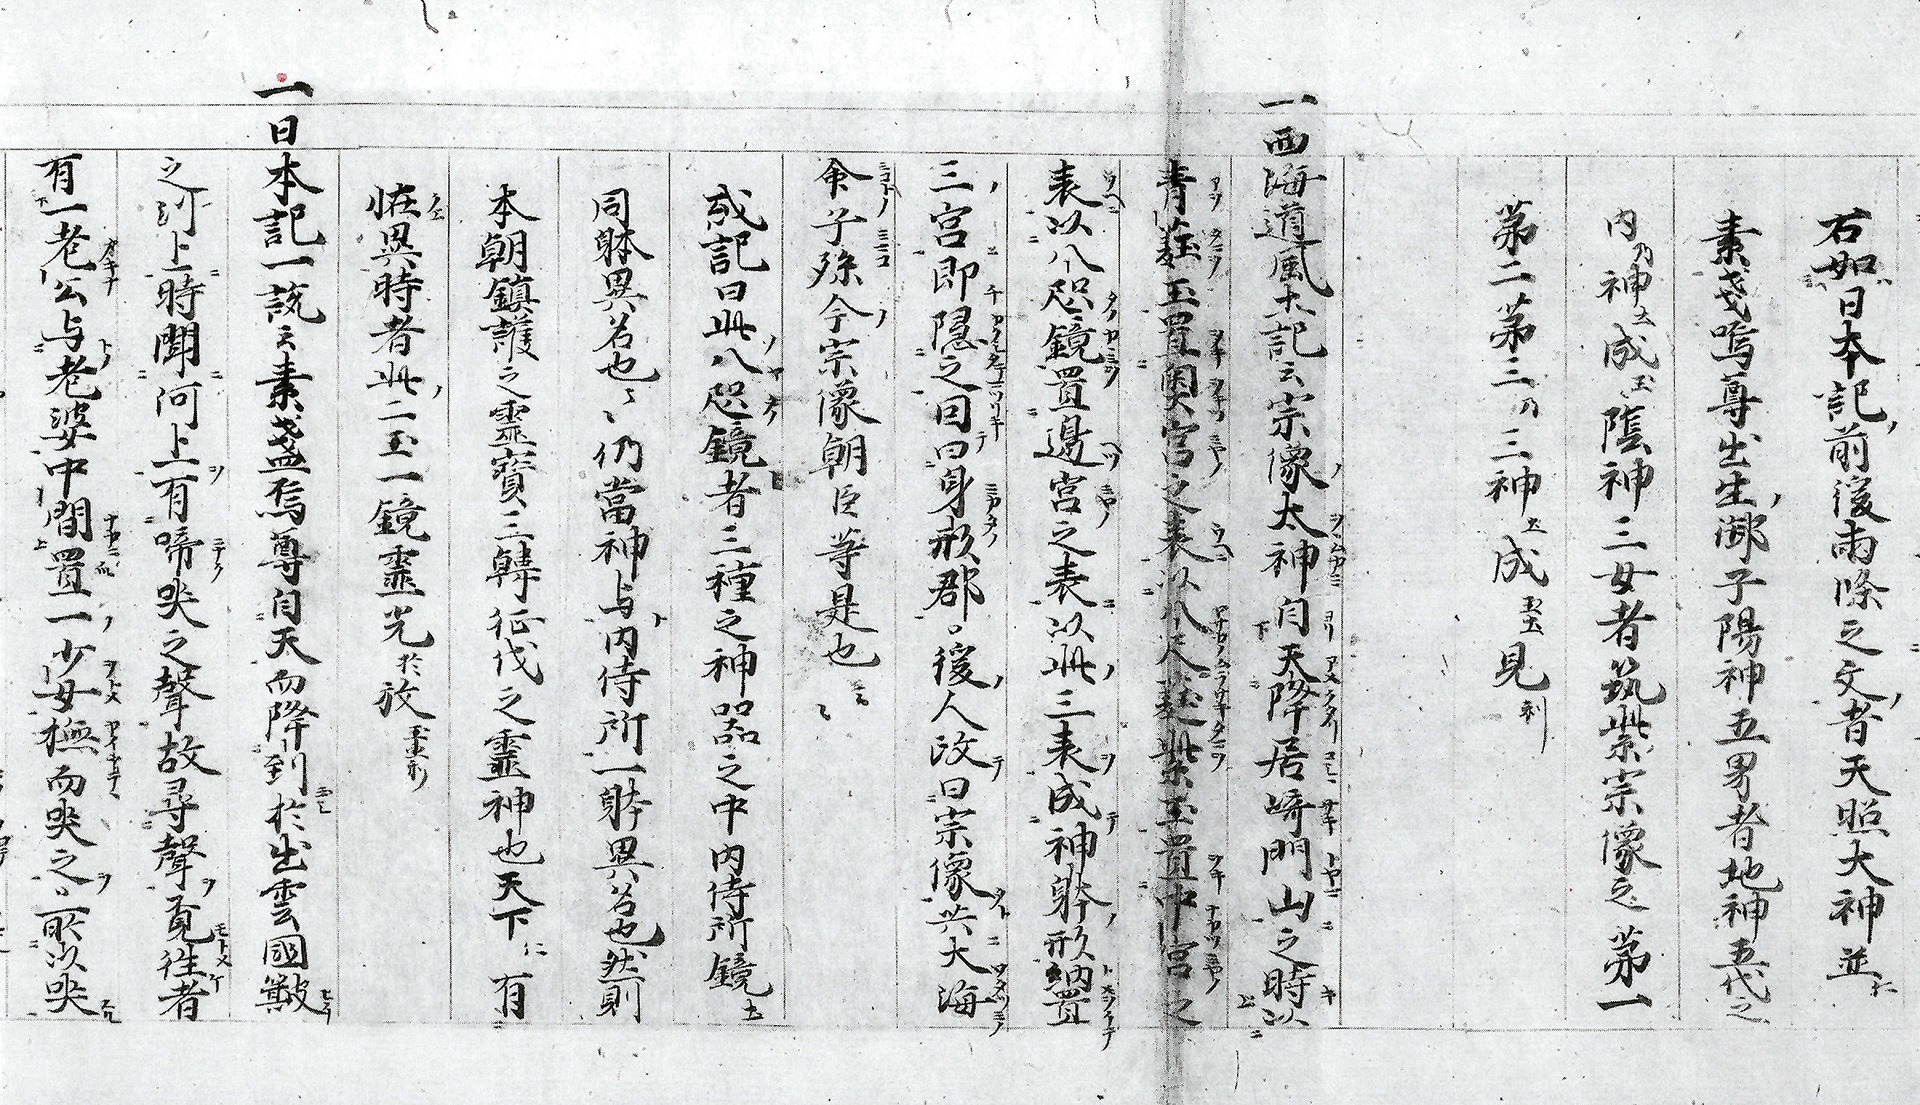 右如日本記前後両條之文者天照大神並仁
素戔嗚尊出生御子陽神五男者地神五代之
内乃神土成玉陰神三女者筑紫宗像之第一
第二第三乃三神土成玉見利
一西海道風土記云宗像大神自天降居埼門山之時以
青蕤玉置奥宮之表以八尺蕤紫玉置中宮之
表以八咫鏡置邊宮之表以此三表成神躰形納置
三宮即隠之因曰身形郡後人改曰宗像其大海
命子孫今宗像朝臣等是也云々
或記曰此八咫鏡者三種之神器之中内侍所鏡土
同躰異名也云々仍當神与内侍所一躰異名也然則
本朝鎮護之霊寶三韓征伐之霊神也天下仁有
恠異時者此二玉一鏡霊光於放玉布
一日本記一説云素盞烏尊自天而降到於出雲國簸
之河上時聞河上有啼哭之聲故尋聲覓往者
有一老公与老婆中間置一少女撫而哭之所以哭